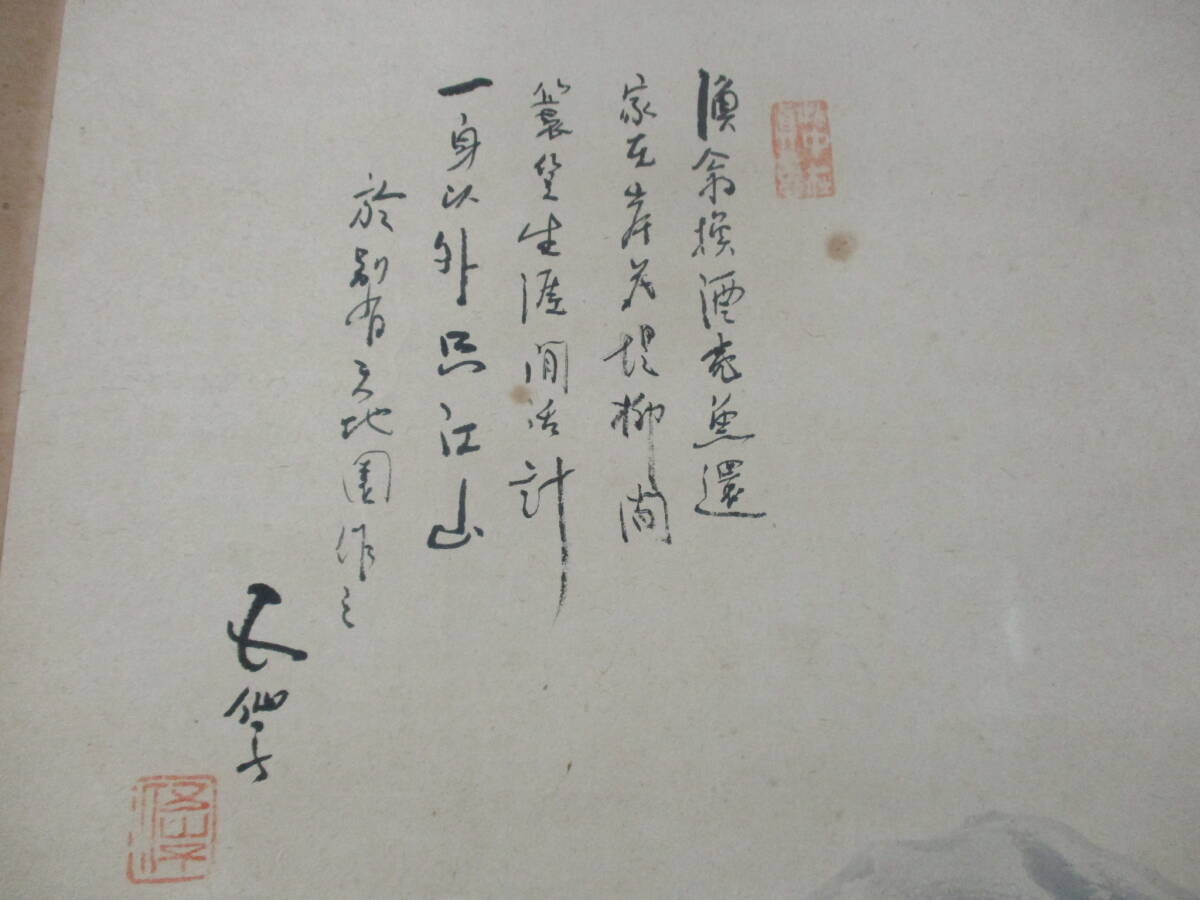 漁翁換酒売魚還
家在岸花堤柳間
簑笠生涯閒活計
一身以外只江山
於別有天地園作之